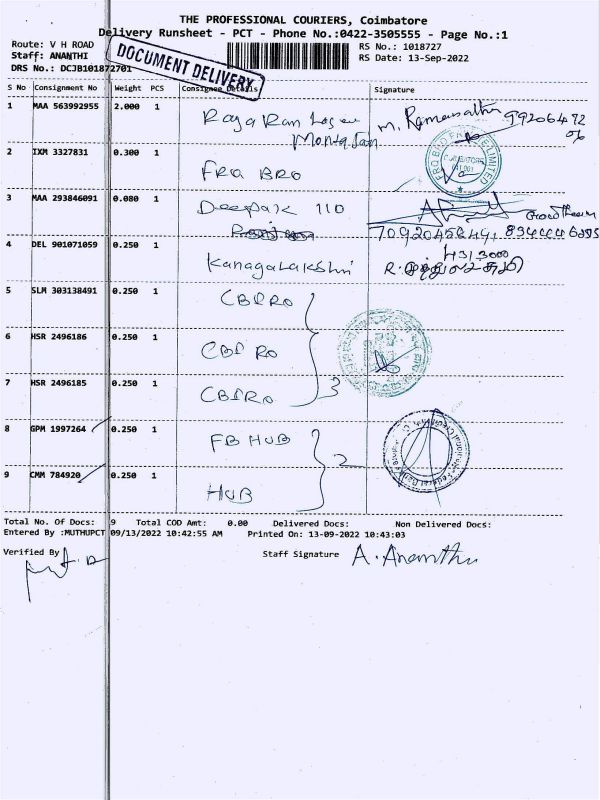 THE PROFESSIONAL COURIERS, Coimbatore
Delivery Runsheet - PCT - Phone No.:0422-3505555 - Page No.:1
Route: V H ROAD
RS No.: 1018727
Staff: ANANTHI
RS Date: 13-Sep-2022
DRS No.: DCJB101872701
DOCUMENT DELIVERY
S No Consignment No Weight PCS Consignee Details Signature
1 MAA 563992955 2.000 1
2 IXM 3327831 0.300 1 FRA BRO
3 MAA 293846091 0.080 1 Deepak 110
4 DEL 901071059 0.250 1 Kanagalakshmi
5 SLM 303138491 0.250 1 CBSRO
6 HSR 2496186 0.250 1 CBSRO
7 HSR 2496185 0.250 1 CBSRO
3
8 GPM 1997264 0.250 1 FB HUB
2
9 CMM 784920 0.250 1 HUB
Total No. Of Docs: 9 Total COD Amt: 0.00 Delivered Docs: Non Delivered Docs:
Entered By :MUTHUPCT 09/13/2022 10:42:55 AM Printed On: 13-09-2022 10:43:03
Verified By
Staff Signature A. Ananthi